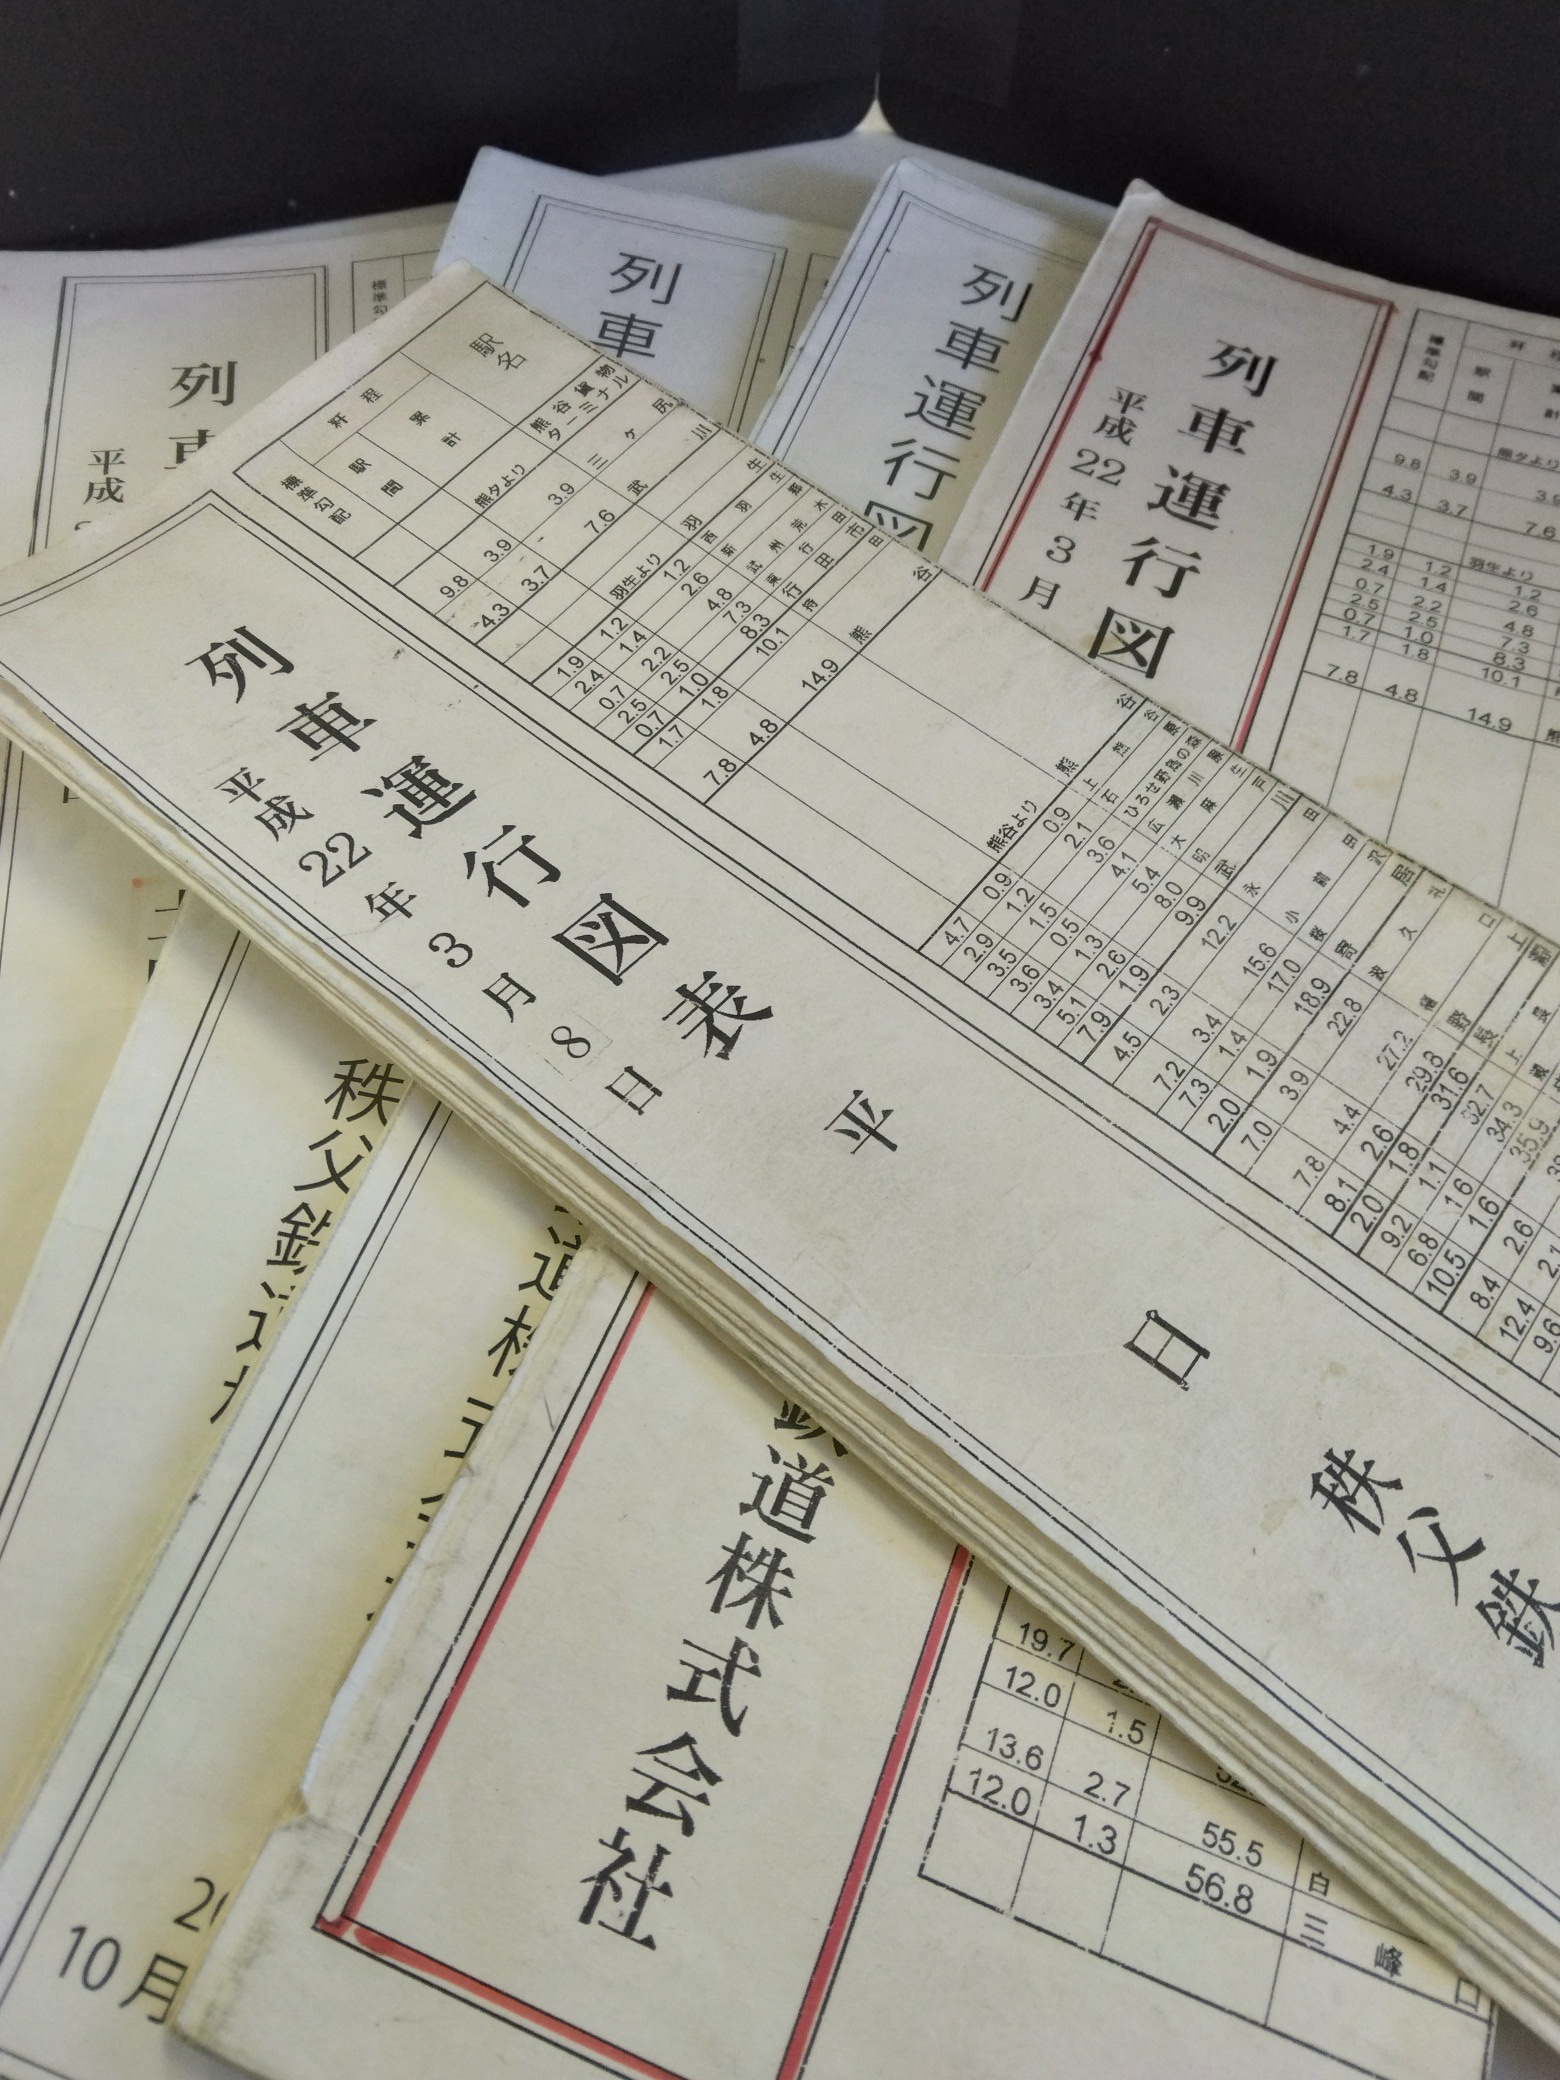 列車運行図表
平成22年3月8日
平日
秩父鉄
駅名
粁程
累計
駅間
標準勾配
熊谷貨物ターミナル
熊タより
三ヶ尻
3.9
武川
7.6
9.8 3.9
4.3 3.7
羽生より
羽生
1.9 1.2 1.2 西羽生
2.4 1.4 2.6 新郷
0.7 2.2 4.8 武州荒木
2.5 2.5 7.3 東行田
0.7 1.0 8.3 行田市
1.7 1.8 10.1 持田
7.8 4.8 14.9 熊谷
熊谷より
熊谷
4.7 0.9 0.9 上熊谷
2.9 1.2 2.1 石原
3.5 1.5 3.6 ひろせ野鳥の森
3.6 0.5 4.1 広瀬川原
3.4 1.3 5.4 大麻生
5.1 2.6 8.0 明戸
7.9 1.9 9.9 武川
4.5 2.3 12.2 永田
7.2 3.4 15.6 小前田
7.3 1.4 17.0 桜沢
2.0 1.9 18.9 寄居
7.0 3.9 22.8 波久礼
7.8 4.4 27.2 樋口
8.1 2.6 29.8 野上
2.0 1.8 31.6 長瀞
9.2 1.1 32.7 上長
6.8 1.6 34.3
10.5 1.6 35.9
8.4 2.6
12.4
9.6
列車運行図
平成22年3月
標準勾配
駅間
熊タより
9.8 3.9 3.9
4.3 3.7 7.6
羽生より
1.9 1.2 1.2
2.4 1.4 2.6
0.7 2.2 4.8
2.5 2.5 7.3
0.7 1.0 8.3
1.7 1.8 10.1
7.8 4.8 14.9
列車運行図
列車
列車
平成
標準勾
秩父鉄道
道株式
鉄道株式会社
10月
19.7
12.0 1.5
13.6 2.7 55.5 白
12.0 1.3 56.8 三峰口